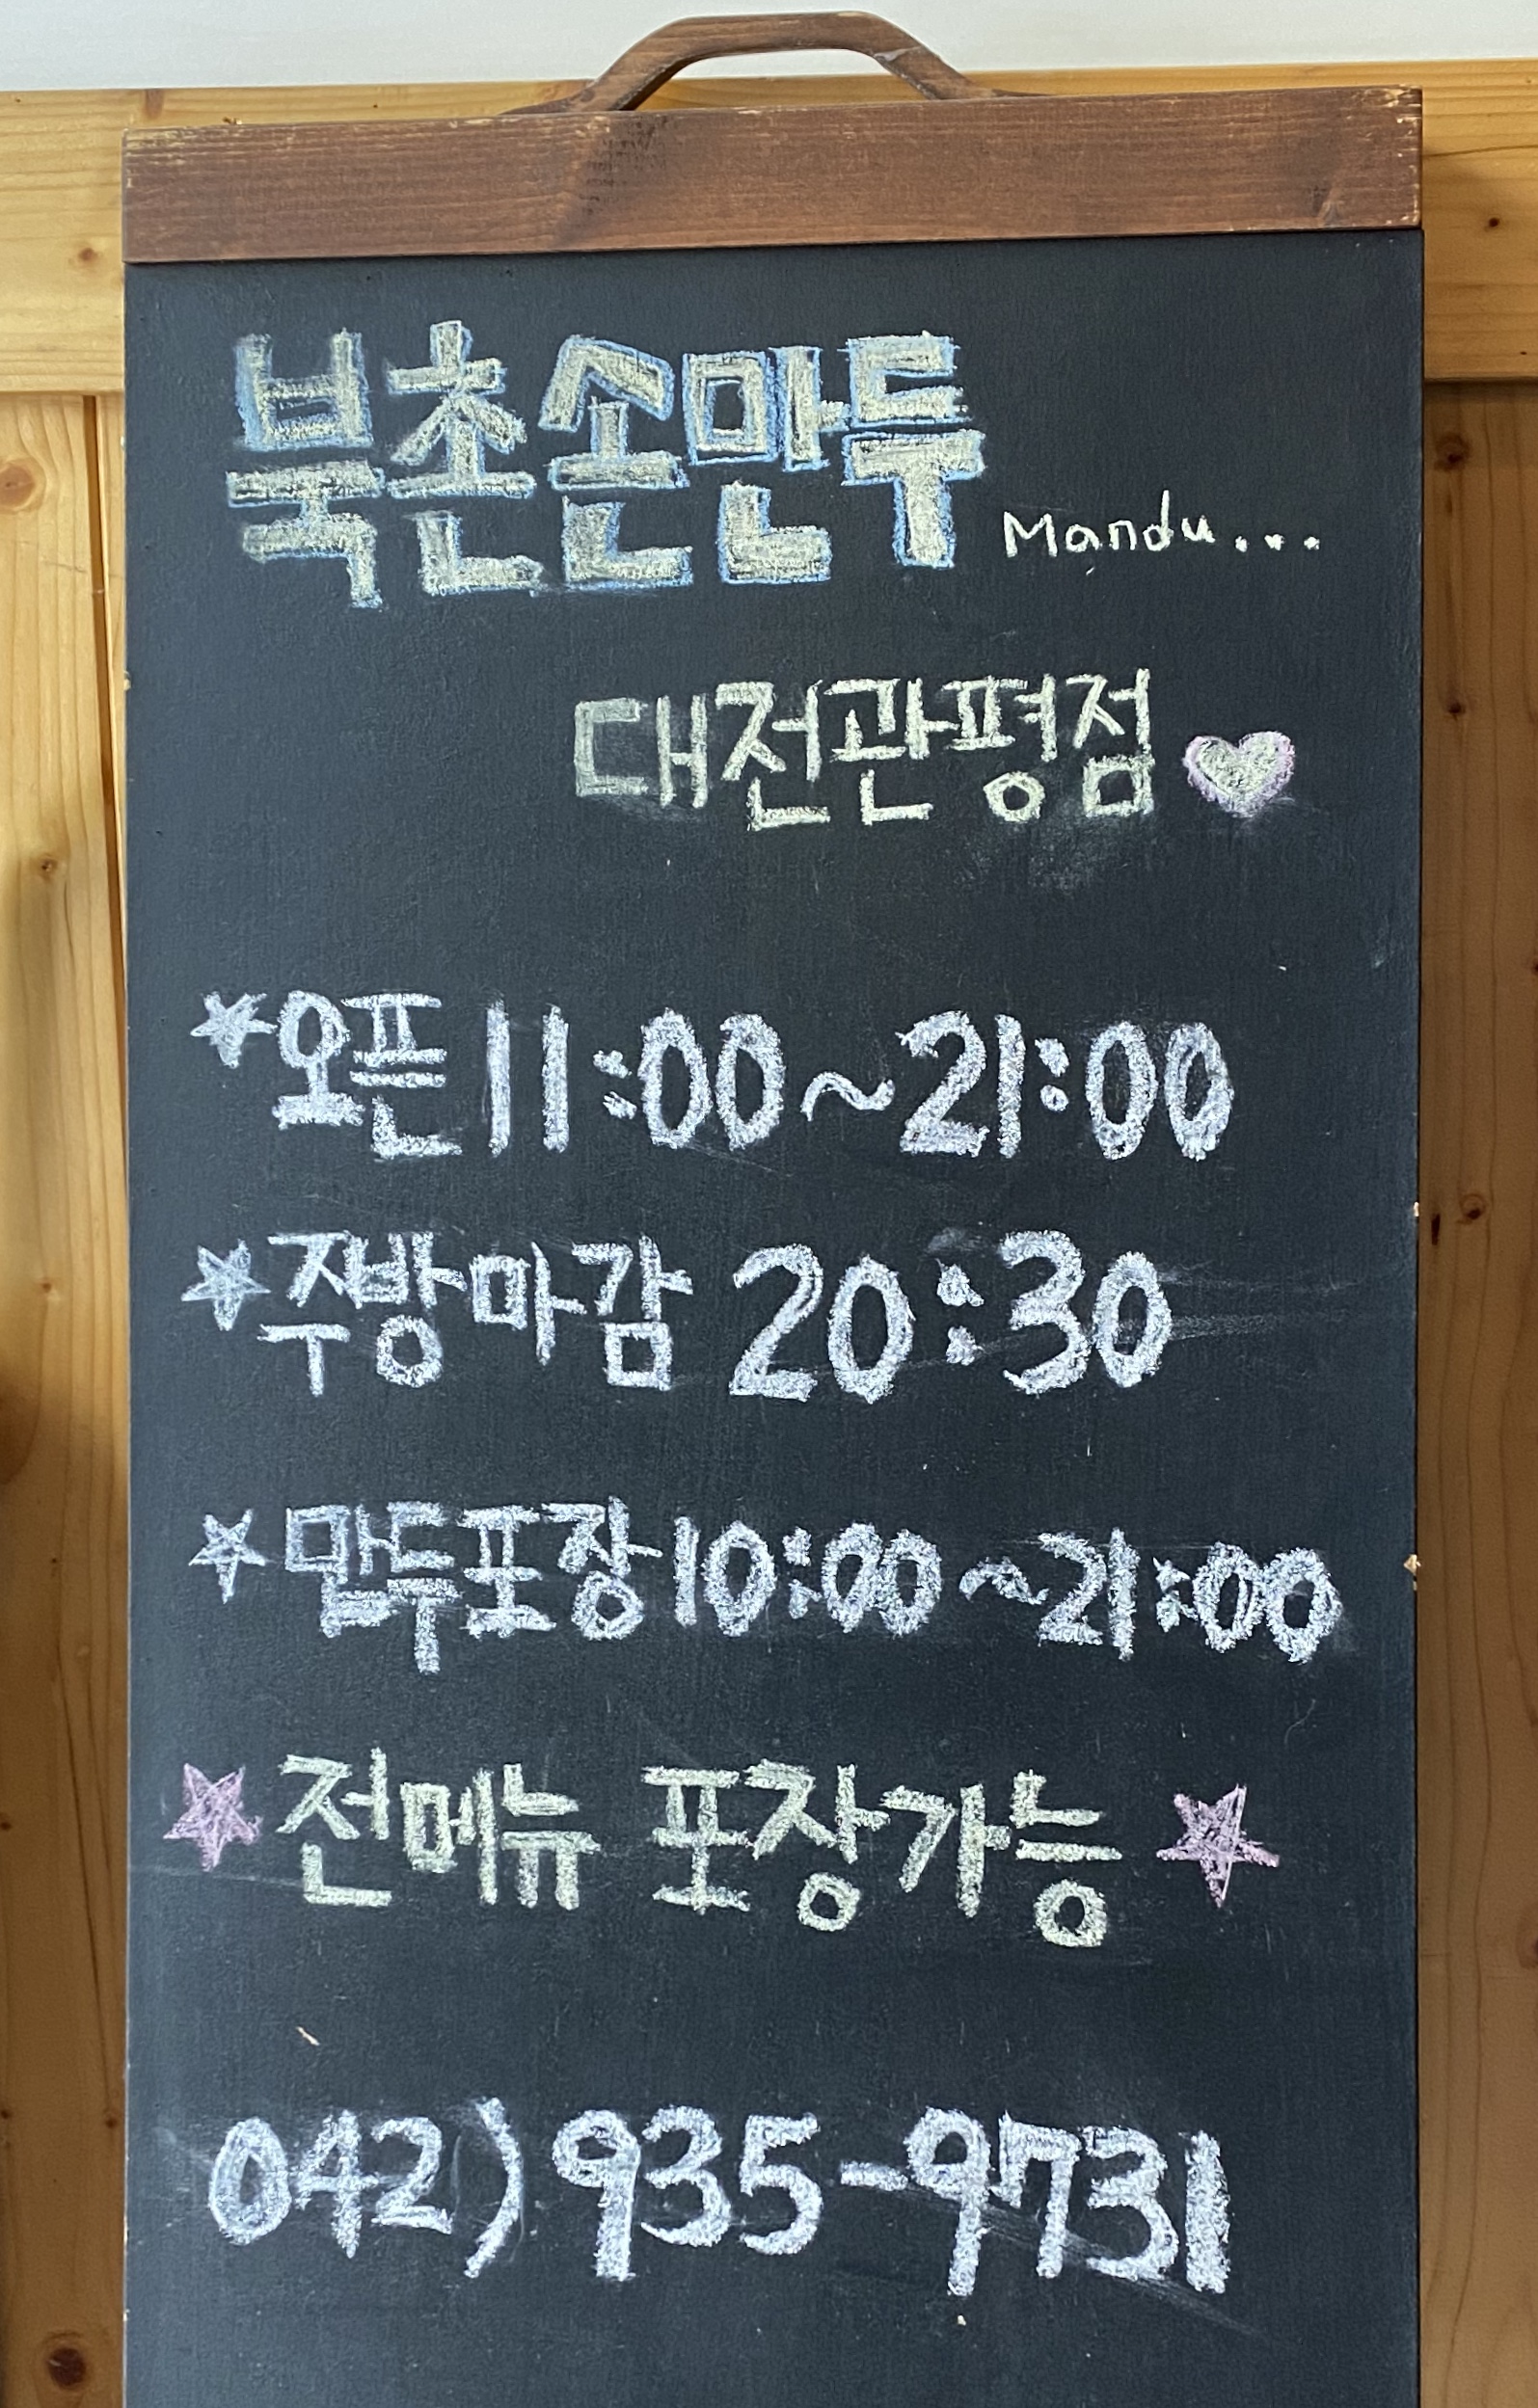 북촌손만두 Mandu...
대전관평점
오픈 11:00~21:00
주방마감 20:30
만두포장 10:00~21:00
전메뉴 포장가능
042) 935-9731